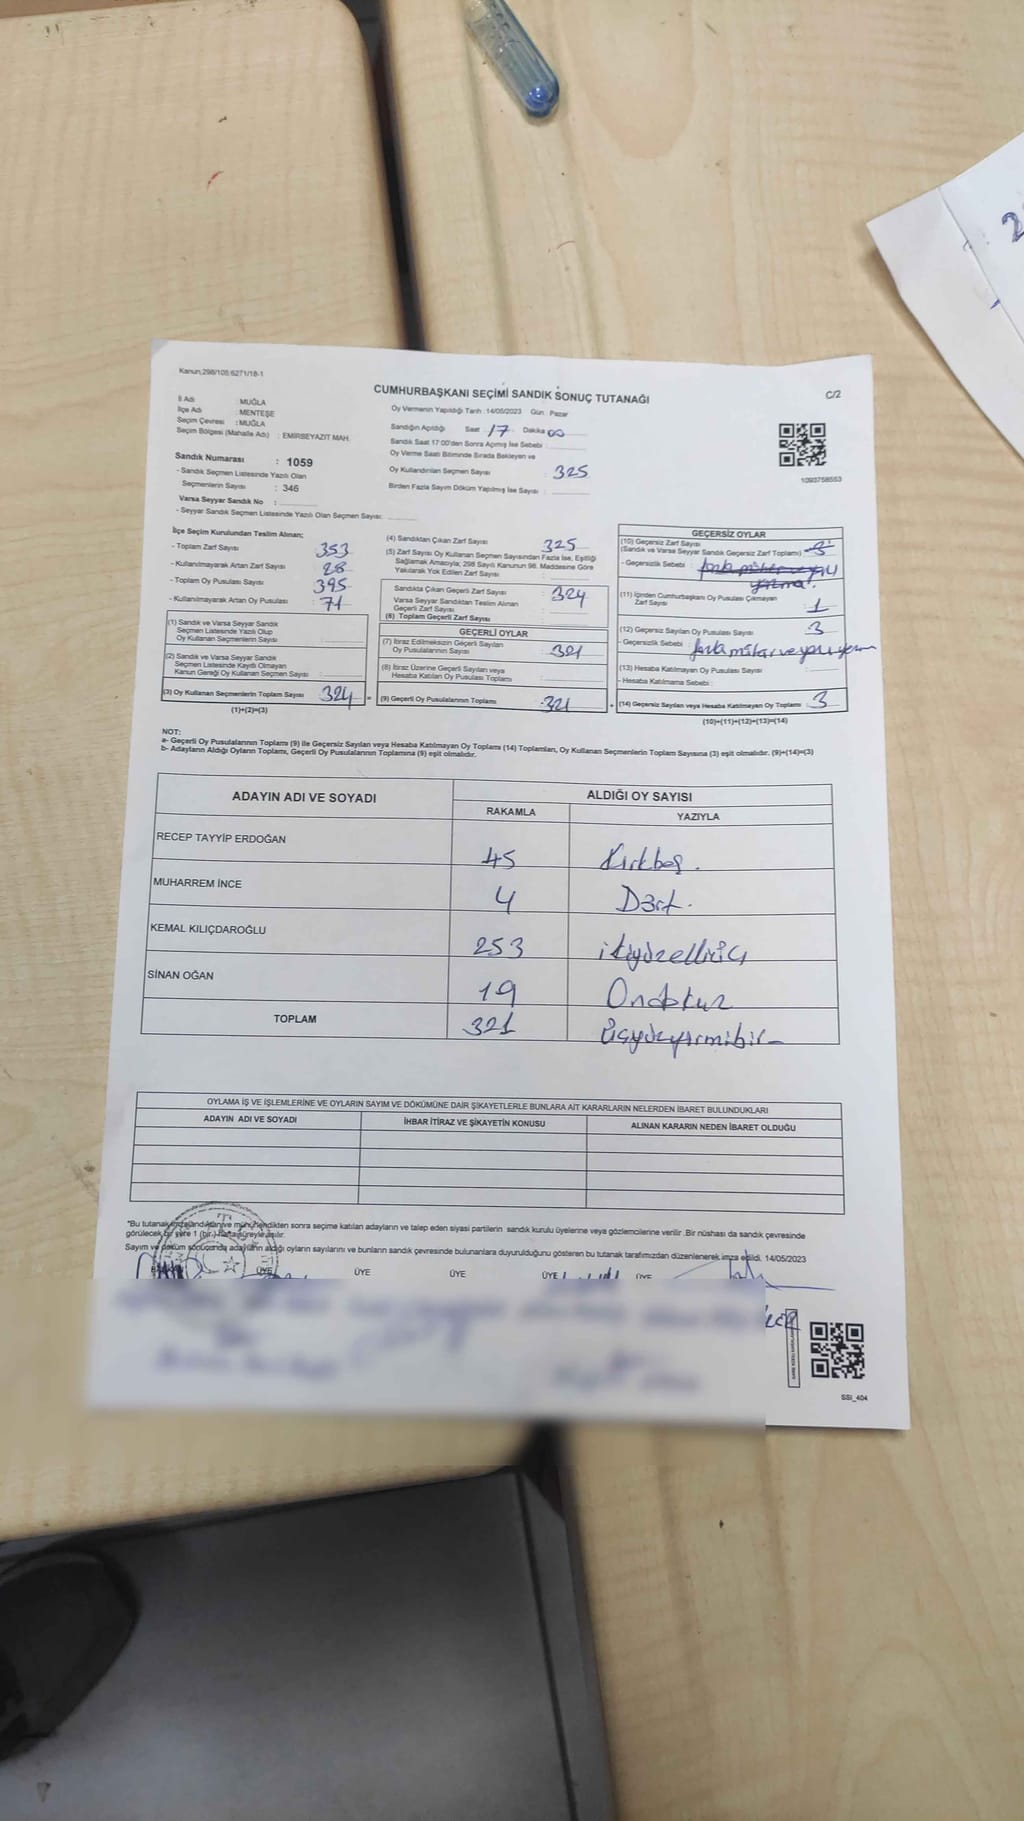 Kanun,298/105;6271/18-1
CUMHURBAŞKANI SEÇİMİ SANDIK SONUÇ TUTANAĞI
C/2
İl Adı : MUĞLA
İlçe Adı : MENTEŞE
Seçim Çevresi : MUĞLA
Seçim Bölgesi (Mahalle Adı) : EMİRBEYAZIT MAH.
Sandık Numarası : 1059
- Sandık Seçmen Listesinde Yazılı Olan
Seçmenlerin Sayısı : 346
Varsa Seyyar Sandık No :
- Seyyar Sandık Seçmen Listesinde Yazılı Olan Seçmen Sayısı:
Oy Vermenin Yapıldığı Tarih :14/05/2023 Gün : Pazar
Sandığın Açıldığı Saat 17 Dakika 00
Sandık Saat 17:00'den Sonra Açmış İse Sebebi :
Oy Verme Saati Bitiminde Sırada Bekleyen ve
Oy Kullandırılan Seçmen Sayısı : 325
Birden Fazla Sayım Döküm Yapılmış İse Sayısı :
1093758553
İlçe Seçim Kurulundan Teslim Alınan;
- Toplam Zarf Sayısı : 353
- Kullanılmayarak Artan Zarf Sayısı : 28
- Toplam Oy Pusulası Sayısı : 395
- Kullanılmayarak Artan Oy Pusulası : 71
(1) Sandık ve Varsa Seyyar Sandık
Seçmen Listesinde Yazılı Olup
Oy Kullanan Seçmenlerin Sayısı :
(2) Sandık ve Varsa Seyyar Sandık
Seçmen Listesinde Kayıtlı Olmayan
Kanun Gereği Oy Kullanan Seçmen Sayısı :
(3) Oy Kullanan Seçmenlerin Toplam Sayısı : 324
(1)+(2)=(3)
(4) Sandıktan Çıkan Zarf Sayısı : 325
(5) Zarf Sayısı Oy Kullanan Seçmen Sayısından Fazla İse, Eşitliği
Sağlamak Amacıyla; 298 Sayılı Kanunun 98. Maddesine Göre
Yakılarak Yok Edilen Zarf Sayısı :
Sandıkta Çıkan Geçerli Zarf Sayısı : 324
Varsa Seyyar Sandıktan Teslim Alınan
Geçerli Zarf Sayısı :
(6) Toplam Geçerli Zarf Sayısı :
GEÇERLİ OYLAR
(7) İtiraz Edilmeksizin Geçerli Sayılan
Oy Pusulalarının Sayısı : 321
(8) İtiraz Üzerine Geçerli Sayılan veya
Hesaba Katılan Oy Pusulası Toplamı :
= (9) Geçerli Oy Pusulalarının Toplamı : 321
GEÇERSİZ OYLAR
(10) Geçersiz Zarf Sayısı
(Sandık ve Varsa Seyyar Sandık Geçersiz Zarf Toplamı) : 3
- Geçersizlik Sebebi : fazla mühür veya
yazma
(11) İçinden Cumhurbaşkanı Oy Pusulası Çıkmayan
Zarf Sayısı : 1
(12) Geçersiz Sayılan Oy Pusulası Sayısı : 3
- Geçersizlik Sebebi : fazla mühür veya
(13) Hesaba Katılmayan Oy Pusulası Sayısı :
- Hesaba Katılmama Sebebi :
+ (14) Geçersiz Sayılan veya Hesaba Katılmayan Oy Toplamı : 3
(10)+(11)+(12)+(13)=(14)
NOT:
a- Geçerli Oy Pusulalarının Toplamı (9) ile Geçersiz Sayılan veya Hesaba Katılmayan Oy Toplamı (14) Toplamları, Oy Kullanan Seçmenlerin Toplam Sayısına (3) eşit olmalıdır. (9)+(14)=(3)
b- Adayların Aldığı Oyların Toplamı, Geçerli Oy Pusulalarının Toplamına (9) eşit olmalıdır.
ADAYIN ADI VE SOYADI
ALDIĞI OY SAYISI
RAKAMLA YAZIYLA
RECEP TAYYİP ERDOĞAN 45 Kırkbeş.
MUHARREM İNCE 4 Dört.
KEMAL KILIÇDAROĞLU 253 ikiyüzelliüç
SİNAN OĞAN 19 Ondokuz
TOPLAM 321 Üçyüzyirmibir
OYLAMA İŞ VE İŞLEMLERİNE VE OYLARIN SAYIM VE DÖKÜMÜNE DAİR ŞİKAYETLERLE BUNLARA AİT KARARLARIN NELERDEN İBARET BULUNDUKLARI
ADAYIN ADI VE SOYADI İHBAR İTİRAZ VE ŞİKAYETİN KONUSU ALINAN KARARIN NEDEN İBARET OLDUĞU
"Bu tutanak imzalandıktan ve mühürlendikten sonra seçime katılan adayların ve talep eden siyasi partilerin sandık kurulu üyelerine veya gözlemcilerine verilir. Bir nüshası da sandık çevresinde
görülecek bir yere 1 (bir) hafta süreyle asılır.
Sayım ve döküm sonucunda adayların aldığı oyların sayılarını ve bunların sandık çevresinde bulunanlara duyurulduğunu gösteren bu tutanak tarafımızdan düzenlenerek imza edildi. 14/05/2023
ÜYE ÜYE ÜYE ÜYE ÜYE
SSI_404